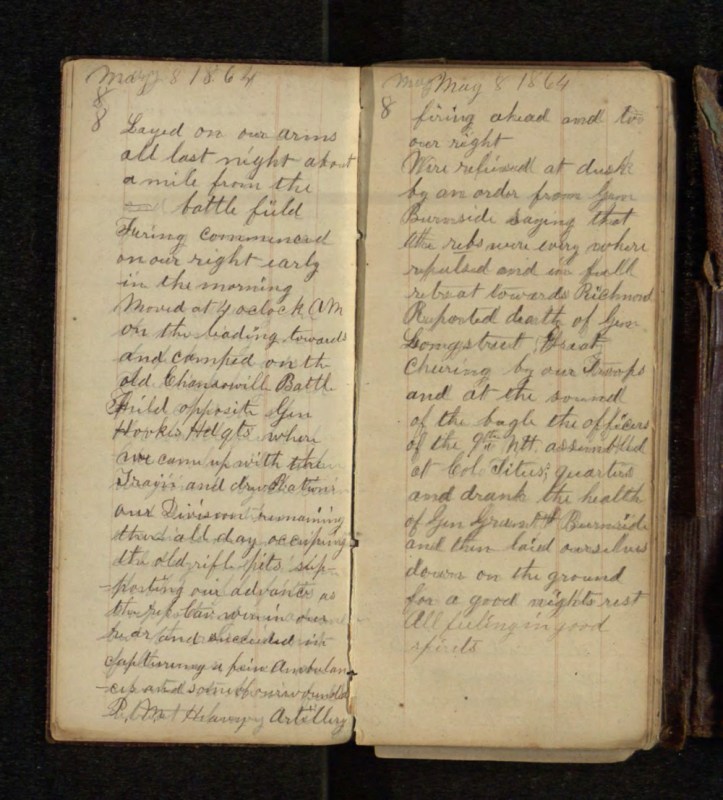 May 8 1864
8
8
Layed on our arms
all last night about
a mile from the
battle field
Firing commenced
on our right early
in the morning
Moved at 4 oclock AM
on the leading towards
and camped on th
old Chancowill Battle
Field opposite Gen
Hookis Hdqts where
we came up with
Train and drew Rations
our Division remaining
there all day occupying
the old rifle pits sup-
-porting our advance as
the were in our
rear and succeeded in
capturing a few Ambulan
-ces and some wounded
Met Heavy Artillery
May May 8 1864
8
firing ahead and to
our right
Were refused at dusk
by an order from Gen
Burnside saying that
the rebs were every where
repulsed and in full
retreat towards Richmond
Reported death of Gen
Longstreet Great
cheering by our Troops
and at the sound
of the bugle the officers
of the 9th NH. assembled
at Col Titus, quarters
and drank the health
of Gen Grant & Burnside
and then laid ourselves
down on the ground
for a good nights rest
All feeling in good
spirits